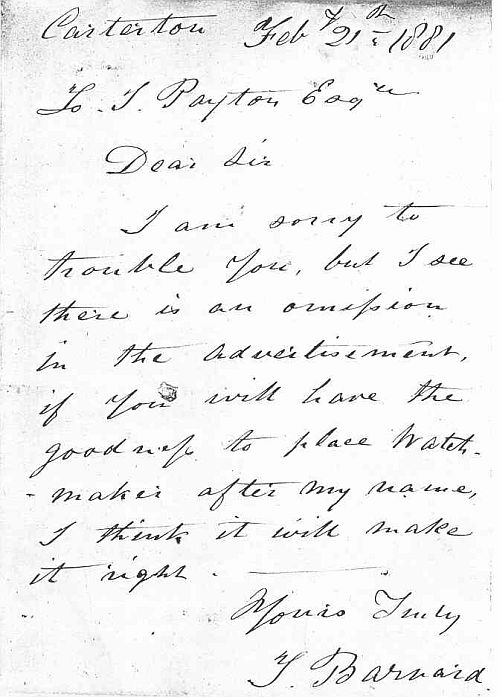 Carterton Feby 21th 1881
To. T. Payton Esqre
Dear Sir
I am sorry to
trouble you, but I see
there is an omission
in the advertisement,
if you will have the
goodness to place Watch-
-maker after my name,
I think it will make
it right.
Yours Truly
T Barnard